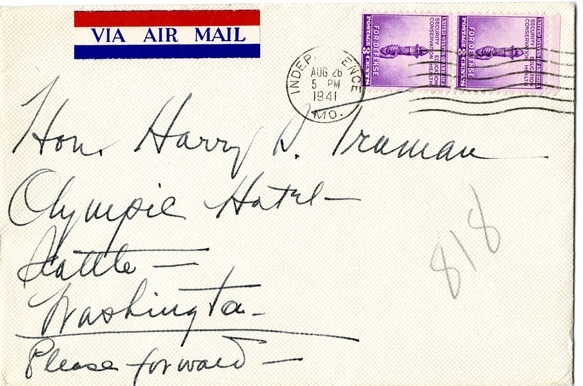 VIA AIR MAIL
INDEPENDENCE
AUG 26
5 PM
1941
MO.
UNITED STATES OF AMERICA
SECURITY · EDUCATION
CONSERVATION · HEALTH
FOR DEFENSE
POSTAGE 3 CENTS
UNITED STATES OF AMERICA
SECURITY · EDUCATION
CONSERVATION · HEALTH
FOR DEFENSE
POSTAGE 3 CENTS
Hon. Harry S. Truman
Olympic Hotel —
Seattle —
Washington —
Please forward —
818